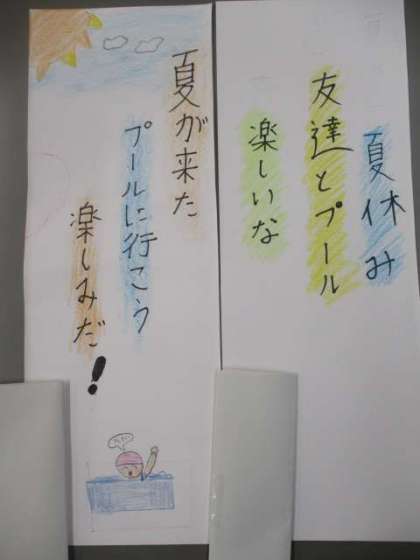 夏休み
友達とプール
楽しいな
夏が来た
プールに行こう
楽しみだ!